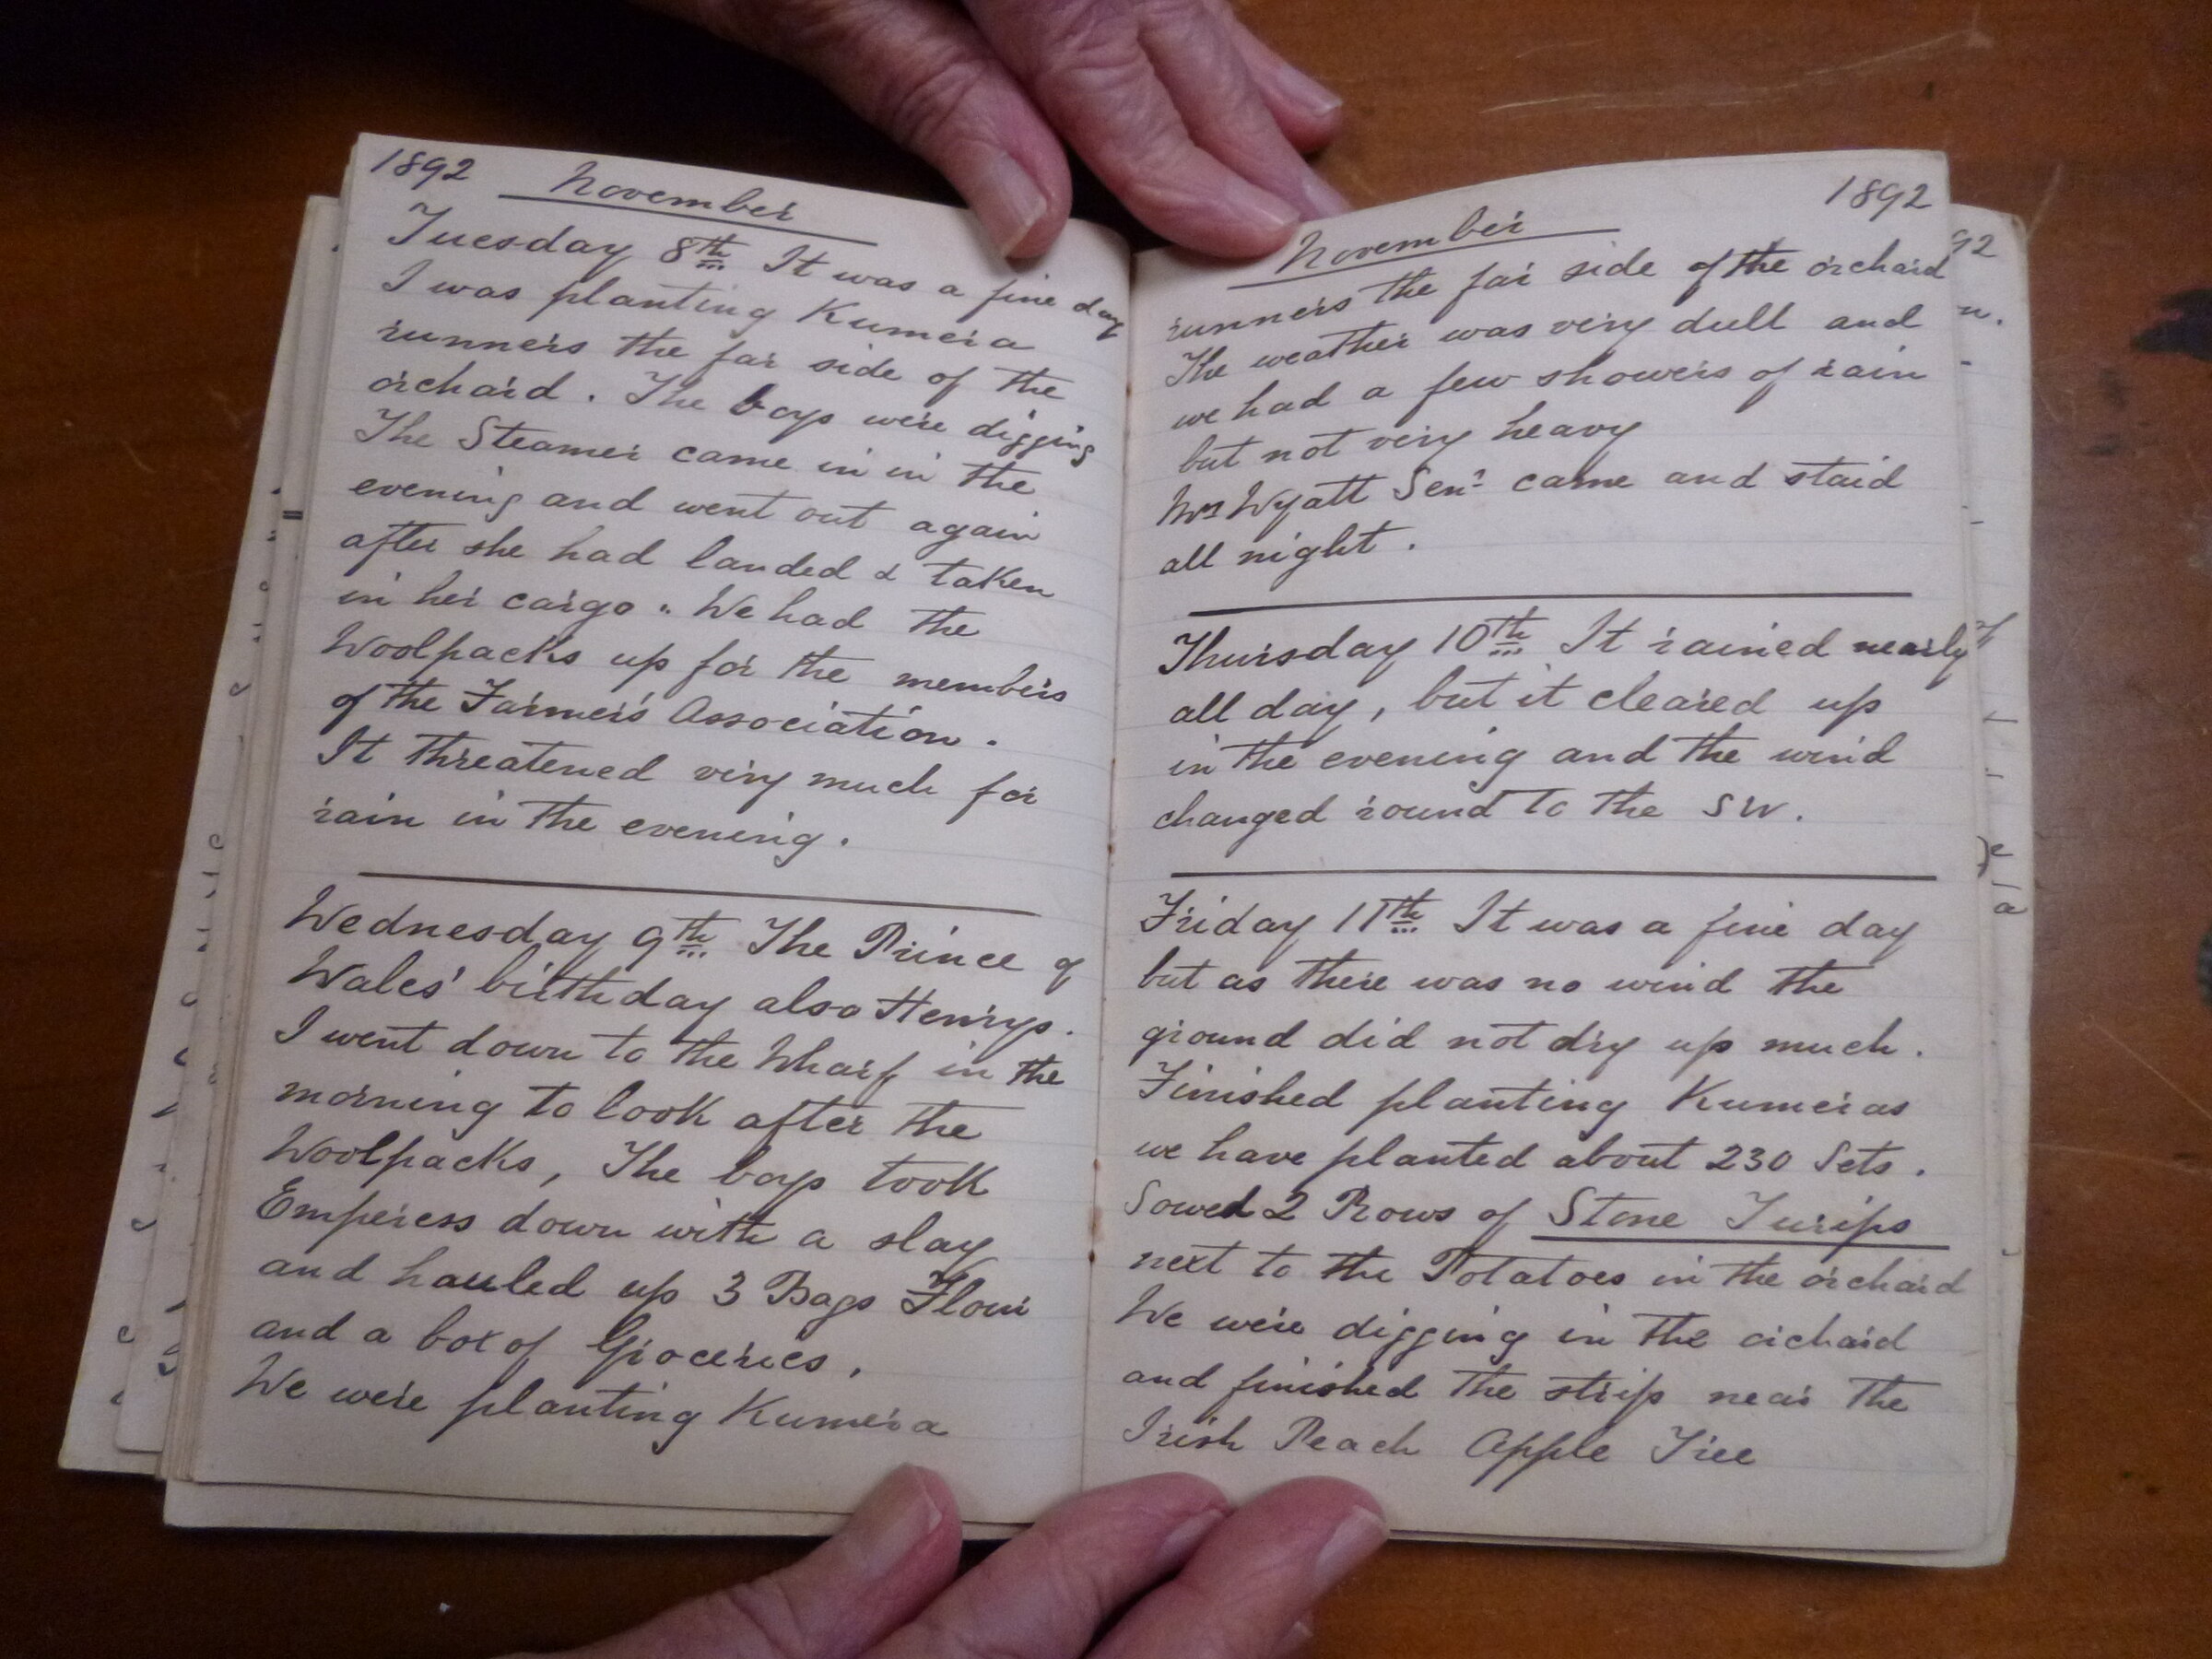 1892 November
Tuesday 8th It was a fine day
I was planting Kumera
runners the far side of the
orchard. The boys were digging
The Steamer came in in the
evening and went out again
after she had landed & taken
in her cargo. We had the
Woolpacks up for the members
of the Farmer's Association.
It threatened very much for
rain in the evening.
Wednesday 9th The Prince of
Wales' birthday also Henrys.
I went down to the Wharf in the
morning to look after the
Woolpacks, The boys took
Emperess down with a slay
and hauled up 3 Bags Flour
and a box of Groceries.
We were planting Kumera
November 1892
runners the far side of the orchard
The weather was very dull and
we had a few showers of rain
but not very heavy
Mrs Wyatt Senr came and staid
all night.
Thursday 10th It rained nearly
all day, but it cleared up
in the evening and the wind
changed round to the SW.
Friday 11th It was a fine day
but as there was no wind the
ground did not dry up much.
Finished planting Kumeras
we have planted about 230 Sets.
Sowed 2 Rows of Stone Turips
next to the Potatoes in the orchard
We were digging in the orchard
and finished the strip near the
Irish Peach Apple Tree